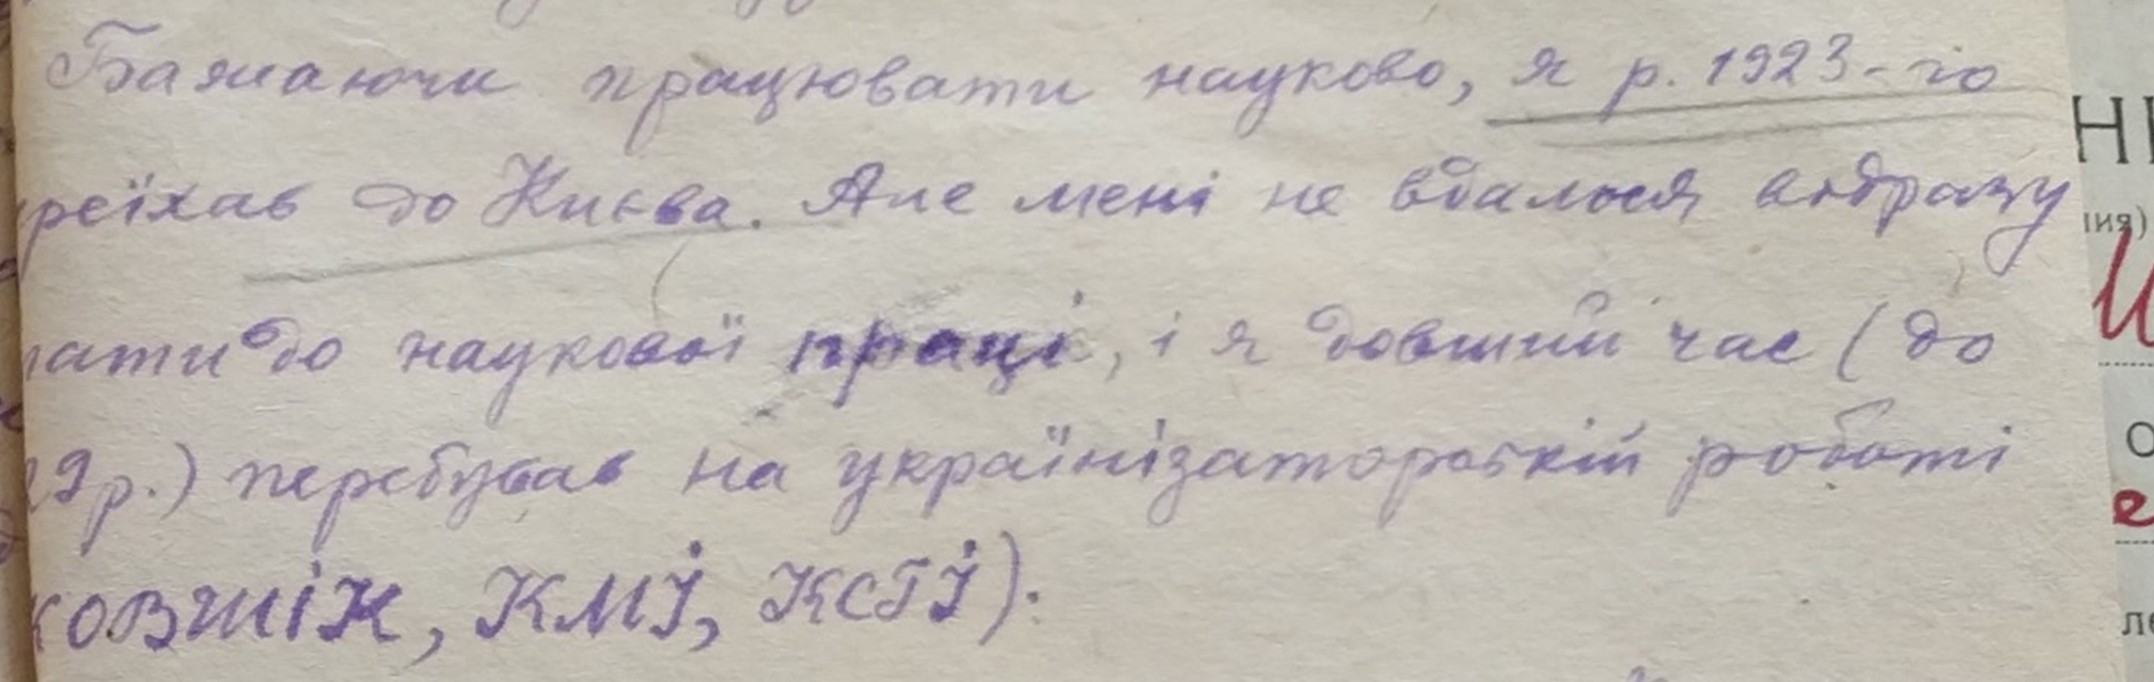 Бажаючи працювати науково, я р. 1923-го
реїхав до Києва. Але мені не вдалося відразу
ати до наукової праці, і я довший час (до
29 р.) перебував на українізаторській роботі
КОВШІК, КМІ, КСГІ).
НІ
ия)
О
ле